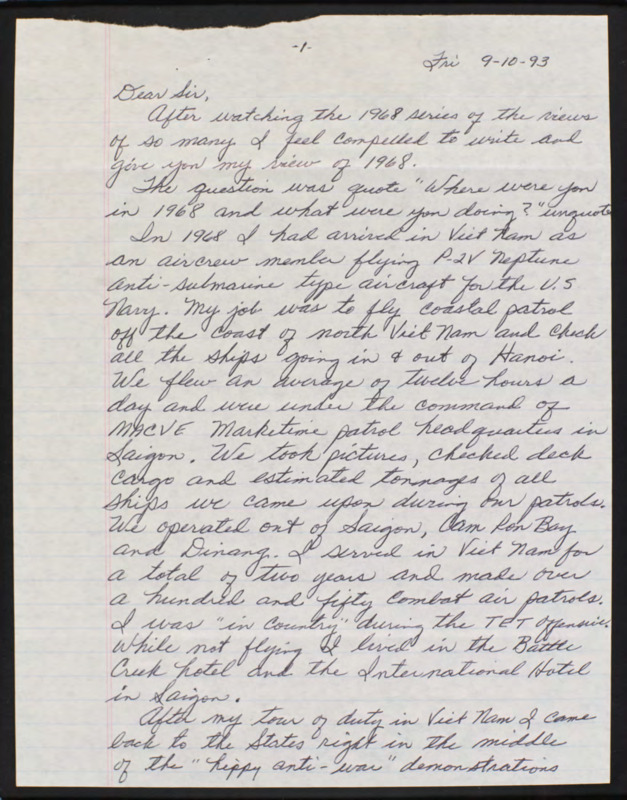 -1-
Fri 9-10-93
Dear Sir,
After watching the 1968 series of the views
of so many I feel compelled to write and
give you my view of 1968.
The question was quote "Where were you
in 1968 and what were you doing?" unquote
In 1968 I had arrived in Viet Nam as
an aircrew member flying P-2V Neptune
anti-submarine type aircraft for the U.S
Navy. My job was to fly coastal patrol
off the coast of north Viet Nam and check
all the ships going in & out of Hanoi.
We flew an average of twelve hours a
day and were under the command of
MACVE Marketime patrol headquarters in
Saigon. We took pictures, checked deck
cargo and estimated tonnages of all
ships we came upon during our patrols.
We operated out of Saigon, Cam Ron Bay
and Dinang. I served in Viet Nam for
a total of two years and made over
a hundred and fifty combat air patrols.
I was "in country" during the TET offensive.
While not flying I lived in the Battle
Creek hotel and the International Hotel
in Saigon.
After my tour of duty in Viet Nam I came
back to the States right in the middle
of the "hippy anti-war" demonstrations